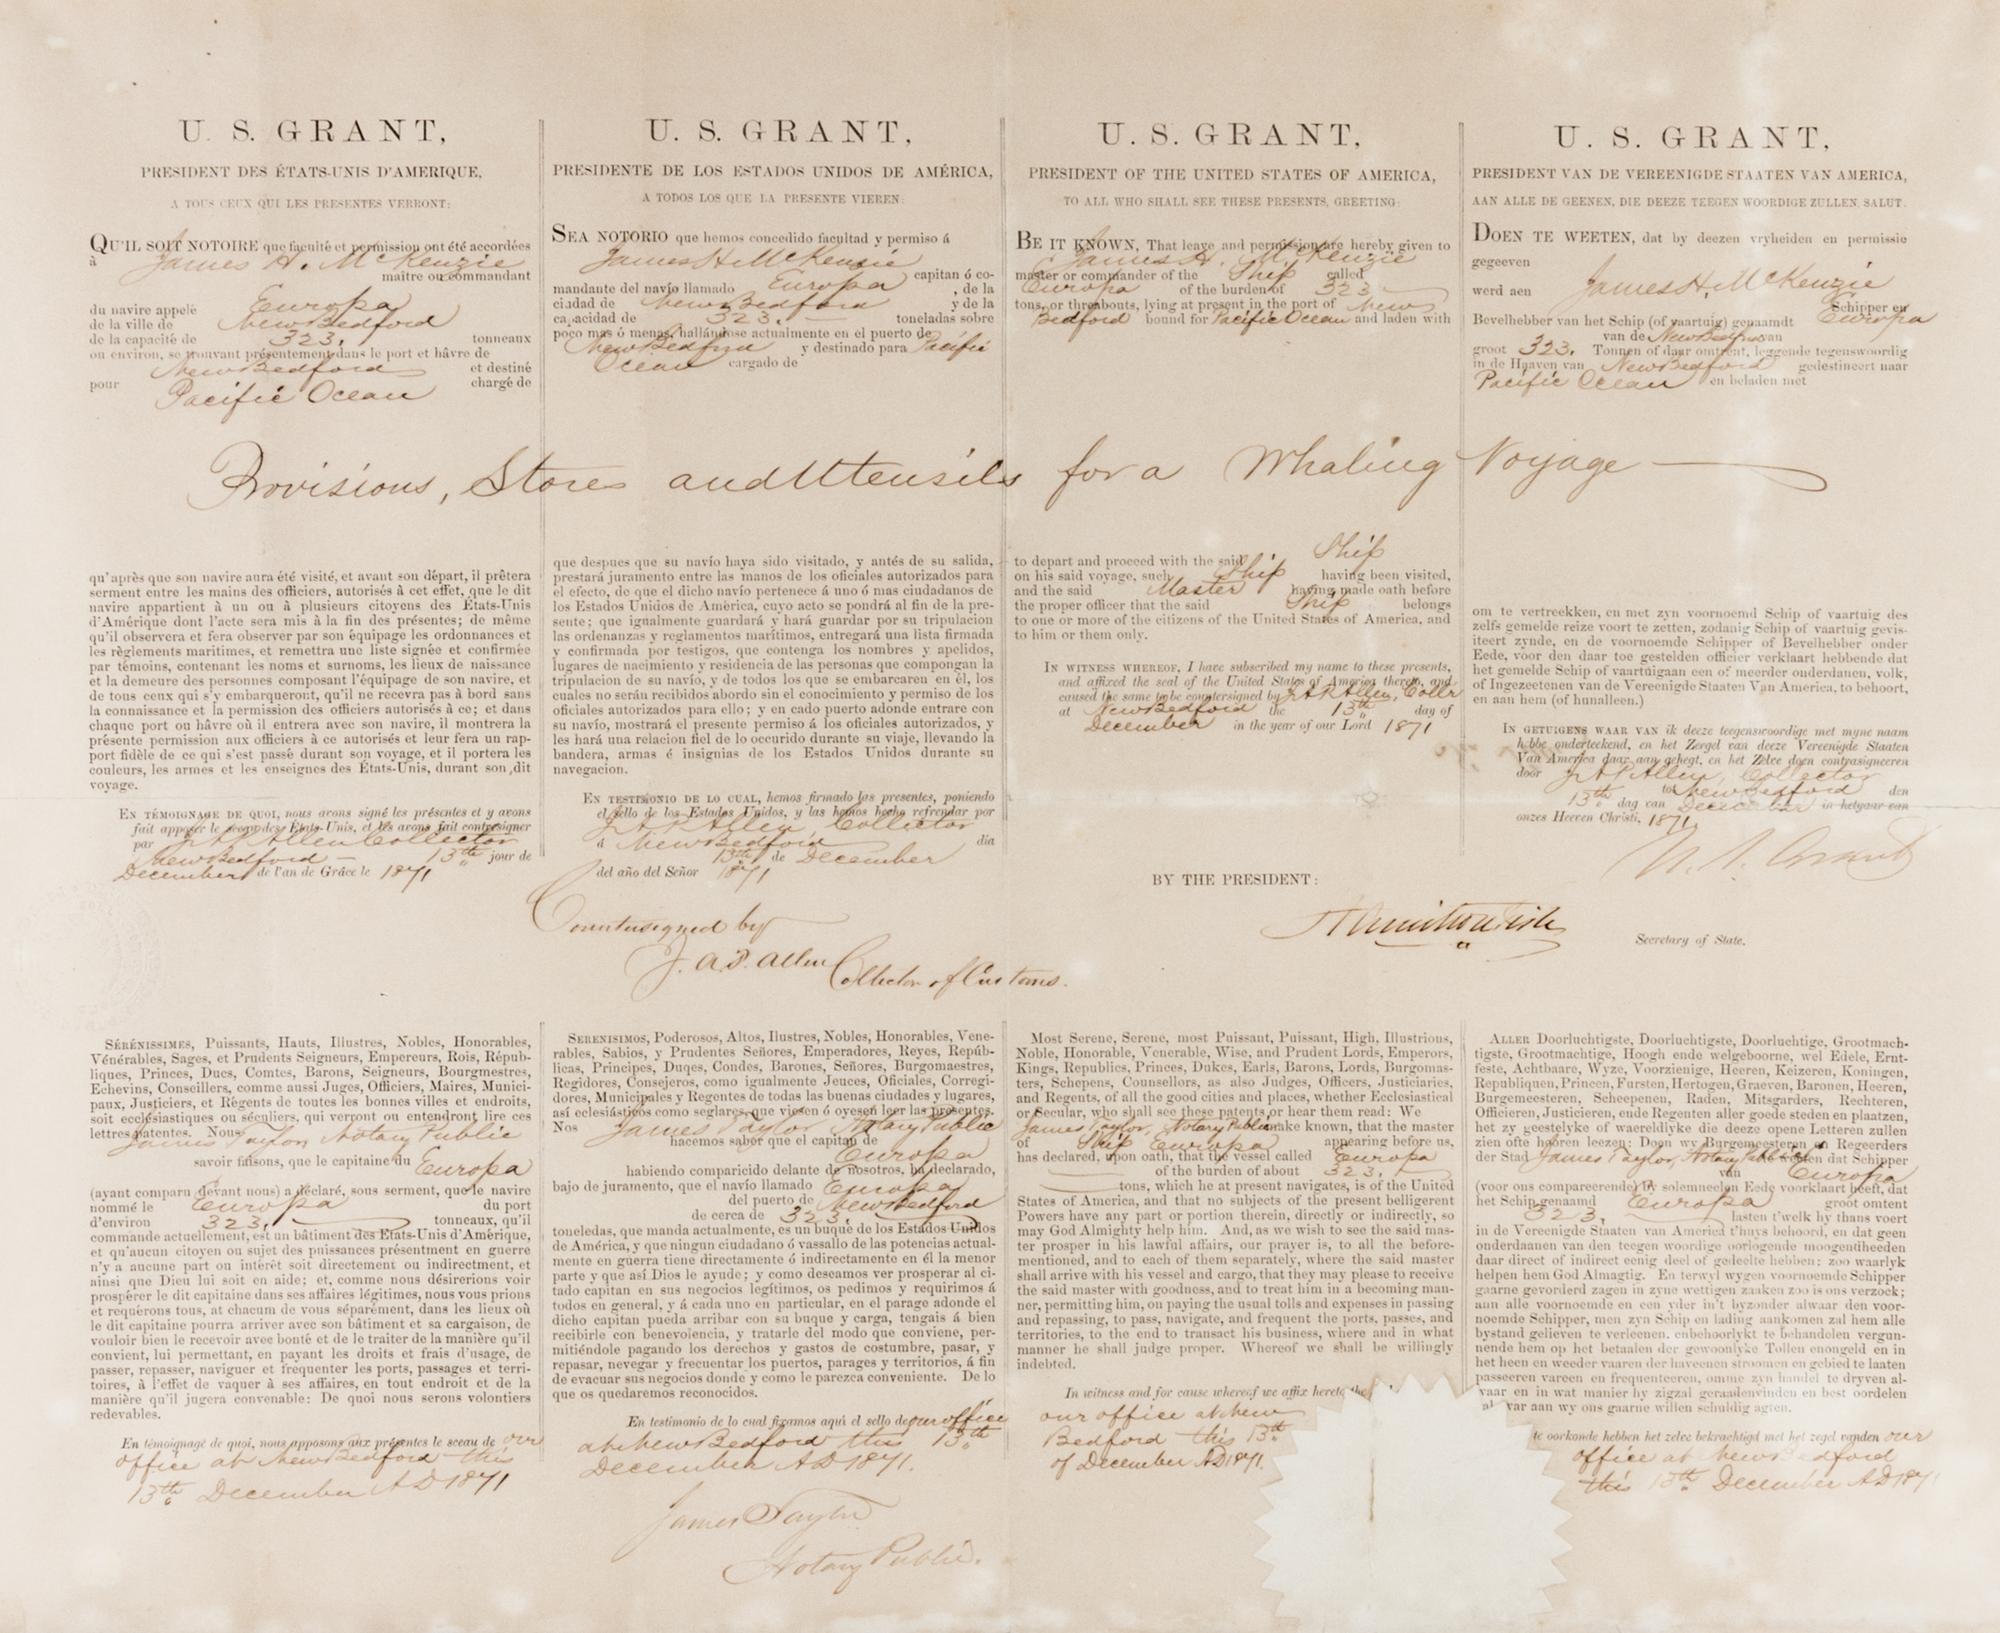 U. S. GRANT,
PRESIDENT DES ÉTATS-UNIS D'AMERIQUE,
A TOUS CEUX QUI LES PRESENTES VERRONT:
QU'IL SOIT NOTOIRE que faculté et permission ont été accordées
à James H. McKenzie
maître ou commandant
du navire appelé Europa
de la ville de New Bedford
de la capacité de 323. tonneaux
ou environ, se trouvant présentement dans le port et hâvre de
New Bedford et destiné
pour Pacific Ocean chargé de
U. S. GRANT,
PRESIDENTE DE LOS ESTADOS UNIDOS DE AMÉRICA,
A TODOS LOS QUE LA PRESENTE VIEREN:
SEA NOTORIO que hemos concedido facultad y permiso á
James H McKenzie capitan ó co-
mandante del navío llamado Europa , de la
ciudad de New Bedford y de la
capacidad de 323. toneladas sobre
poco mas ó menos, hallándose actualmente en el puerto de
New Bedford y destinado para Pacific
Ocean cargado de
U. S. GRANT,
PRESIDENT OF THE UNITED STATES OF AMERICA,
TO ALL WHO SHALL SEE THESE PRESENTS, GREETING:
BE IT KNOWN, That leave and permission are hereby given to
James H. McKenzie
master or commander of the Ship called
Europa of the burden of 323
tons, or threabouts, lying at present in the port of New
Bedford bound for Pacific Ocean and laden with
U. S. GRANT,
PRESIDENT VAN DE VEREENIGDE STAATEN VAN AMERICA,
AAN ALLE DE GEENEN, DIE DEEZE TEEGEN WOORDIGE ZULLEN, SALUT.
DOEN TE WEETEN, dat by deezen vryheiden en permissie
gegeeven
werd aen James H. McKenzie
Schipper en
Bevelhebber van het Schip (of vaartuig) genaamdt Europa
van de New Bedford van
groot 323. Tonnen of daar omtrent, leggende tegenswoordig
in de Haaven van New Bedford gedestineert naar
Pacific Ocean en beladen met
Provisions, Stores and Utensils for a Whaling Voyage
qu'après que son navire aura été visité, et avant son départ, il prêtera
serment entre les mains des officiers, autorisés à cet effet, que le dit
navire appartient à un ou à plusieurs citoyens des États-Unis
d'Amérique dont l'acte sera mis à la fin des présentes; de même
qu'il observera et fera observer par son équipage les ordonnances et
les règlements maritimes, et remettra une liste signée et confirmée
par témoins, contenant les noms et surnoms, les lieux de naissance
et la demeure des personnes composant l'équipage de son navire, et
de tous ceux qui s'y embarqueront, qu'il ne recevra pas à bord sans
la connaissance et la permission des officiers autorisés à ce; et dans
chaque port ou hâvre où il entrera avec son navire, il montrera la
présente permission aux officiers à ce autorisés et leur fera un rap-
port fidèle de ce qui s'est passé durant son voyage, et il portera les
couleurs, les armes et les enseignes des États-Unis, durant son dit
voyage.
EN TÉMOIGNAGE DE QUOI, nous avons signé les présentes et y avons
fait apposer le sceau des États-Unis, et les avons fait contresigner
par J. A. P. Allen Collector
New Bedford 13th jour de
December de l'an de Grâce le 1871
que despues que su navío haya sido visitado, y antés de su salida,
prestará juramento entre las manos de los oficiales autorizados para
el efecto, de que el dicho navío pertenece á uno ó mas ciudadanos de
los Estados Unidos de América, cuyo acto se pondrá al fin de la pre-
sente; que igualmente guardará y hará guardar por su tripulacion
las ordenanzas y reglamentos marítimos, entregará una lista firmada
y confirmada por testigos, que contenga los nombres y apelidos,
lugares de nacimiento y residencia de las personas que compongan la
tripulacion de su navío, y de todos los que se embarcaren en él, los
cuales no serán recibidos abordo sin el conocimiento y permiso de los
oficiales autorizados para ello; y en cado puerto adonde entrare con
su navío, mostrará el presente permiso á los oficiales autorizados, y
les hará una relacion fiel de lo occurido durante su viaje, llevando la
bandera, armas é insignias de los Estados Unidos durante su
navegacion.
EN TESTIMONIO DE LO CUAL, hemos firmado las presentes, poniendo
el sello de los Estados Unidos, y las hemos hecho refrendar por
J. A. P. Allen, Collector
á New Bedford dia
13th de December
del año del Señor 1871
to depart and proceed with the said Ship
on his said voyage, such Ship having been visited,
and the said Master having made oath before
the proper officer that the said Ship belongs
to one or more of the citizens of the United States of America, and
to him or them only.
IN WITNESS WHEREOF, I have subscribed my name to these presents,
and affixed the seal of the United States of America thereto, and
caused the same to be countersigned by J. A. P. Allen, Collr
at New Bedford the 13th day of
December in the year of our Lord 1871
om te vertreekken, en met zyn voornoemd Schip of vaartuig des
zelfs gemelde reize voort te zetten, zodanig Schip of vaartuig gevis-
iteert zynde, en de voornoemde Schipper of Bevelhebber onder
Eede, voor den daar toe gestelden officier verklaart hebbende dat
het gemelde Schip of vaartuigaan een of meerder onderdanen, volk,
of Ingezeetenen van de Vereenigde Staaten Van America, te behoort,
en aan hem (of hunalleen.)
IN GETUIGENS WAAR VAN ik deeze teegenswoordige met myne naam
hebbe onderteekend, en het Zergel van deeze Vereenigde Staaten
Van America daar aan gehegt, en het Zelve doen contrasigneeren
door J. A. P. Allen, Collector
to New Bedford den
13th dag van December in hetyaar van
onzes Heeven Christi, 1871
U. S. Grant
BY THE PRESIDENT:
Hamilton Fish
Secretary of State.
Countersigned by
J. A. P. Allen Collector of Customs.
SÉRÉNISSIMES, Puissants, Hauts, Illustres, Nobles, Honorables,
Vénérables, Sages, et Prudents Seigneurs, Empereurs, Rois, Répub-
liques, Princes, Ducs, Comtes, Barons, Seigneurs, Bourgmestres,
Echevins, Conseillers, comme aussi Juges, Officiers, Maires, Munici-
paux, Justiciers, et Régents de toutes les bonnes villes et endroits,
soit ecclésiastiques ou séculiers, qui verront ou entendront lire ces
lettres patentes. Nous James Taylor Notary Public
savoir faisons, que le capitaine du Europa
(ayant comparu devant nous) a déclaré, sous serment, que le navire
nommé le Europa du port
d'environ 323. tonneaux, qu'il
commande actuellement, est un bâtiment des États-Unis d'Amérique,
et qu'aucun citoyen ou sujet des puissances présentment en guerre
n'y a aucune part ou intérêt soit directement ou indirectment, et
ainsi que Dieu lui soit en aide; et, comme nous désirerions voir
prospérer le dit capitaine dans ses affaires légitimes, nous vous prions
et requérons tous, at chacum de vous séparément, dans les lieux où
le dit capitaine pourra arriver avec son bâtiment et sa cargaison, de
vouloir bien le recevoir avec bonté et de le traiter de la manière qu'il
convient, lui permettant, en payant les droits et frais d'usage, de
passer, repasser, naviguer et fréquenter les ports, passages et terri-
toires, à l'effet de vaquer à ses affaires, en tout endroit et de la
manière qu'il jugera convenable: De quoi nous serons volontiers
redevables.
En témoignage de quoi, nous apposons aux présentes le sceau de our
office at New Bedford this
13th December AD 1871
SERENISIMOS, Poderosos, Altos, Ilustres, Nobles, Honorables, Vene-
rables, Sabios, y Prudentes Señores, Emperadores, Reyes, Repúb-
licas, Principes, Duqes, Condes, Barones, Señores, Burgomaestros,
Regidores, Consejeros, como igualmente Jeuces, Oficiales, Corregi-
dores, Municipales y Regentes de todas las buenas ciudades y lugares,
así eclesiásticos como seglares, que viesen ó oyesen leer las presentes.
Nos James Taylor Notary Public
hacemos saber que el capitan de
Europa
habiendo comparicido delante de nosotros, ha declarado,
bajo de juramento, que el navío llamado Europa
del puerto de New Bedford
de cerca de 323.
toneledas, que manda actualmente, es un buque de los Estados Unidos
de América, y que ningun ciudadano ó vassallo de las potencias actual-
mente en guerra tiene directamente ó indirectamente en él la menor
parte y que así Dios le ayude; y como deseamos ver prosperar al ci-
tado capitan en sus negocios legítimos, os pedimos y requirimos á
todos en general, y á cada uno en particular, en el parage adonde el
dicho capitan pueda arribar con su buque y carga, tengais á bien
recibirle con benevolencia, y tratarle del modo que conviene, per-
mitiéndole pagando los derechos y gastos de costumbre, pasar, y
repasar, nevegar y frecuentar los puertos, parages y territorios, á fin
de evacuar sus negocios donde y como le parezca conveniente. De lo
que os quedaremos reconocidos.
En testimonio de lo cual fixamos aquà el sello de our office
at New Bedford this 13th
December AD 1871.
James Taylor
Notary Public.
Most Serene, Serene, most Puissant, Puissant, High, Illustrious,
Noble, Honorable, Venerable, Wise, and Prudent Lords, Emperors,
Kings, Republics, Princes, Dukes, Earls, Barons, Lords, Burgomas-
ters, Schepens, Counsellors, as also Judges, Officers, Justiciaries,
and Regents, of all the good cities and places, whether Ecclesiastical
or Secular, who shall see these patents, or hear them read: We
James Taylor, Notary Public make known, that the master
of Ship Europa appearing before us,
has declared, upon oath, that the vessel called Europa
of the burden of about 323.
tons, which he at present navigates, is of the United
States of America, and that no subjects of the present belligerent
Powers have any part or portion therein, directly or indirectly, so
may God Almighty help him. And, as we wish to see the said mas-
ter prosper in his lawful affairs, our prayer is, to all the before-
mentioned, and to each of them separately, where the said master
shall arrive with his vessel and cargo, that they may please to receive
the said master with goodness, and to treat him in a becoming man-
ner, permitting him, on paying the usual tolls and expenses in passing
and repassing, to pass, navigate, and frequent the ports, passes, and
territories, to the end to transact his business, where and in what
manner he shall judge proper. Whereof we shall be willingly
indebted.
In witness and for cause whereof we affix hereto the
our office at New
Bedford this 13th
of December AD 1871.
ALLER Doorluchtigste, Doorluchtigste, Doorluchtige, Grootmach-
tigste, Grootmachtige, Hoogh ende welgeboorne, wel Edele, Ernt-
feste, Achtbaare, Wyze, Voorzienige, Heeren, Keizeren, Koningen,
Republiquen, Princen, Fursten, Hertogen, Graeven, Baronen, Heeren,
Burgemeesteren, Scheepenen, Raden, Mitsgarders, Rechteren,
Officieren, Justicieren, ende Regenten aller goede steden en plaatzen,
het zy geestelyke of waereldlyke die deeze opene Letteren zullen
zien ofte hooren leezen: Doen wy Burgemeesteren en Regeerders
der Stad James Taylor, Notary Public weeten dat Schipper
van Europa
(voor ons compareerende) by solemneelen Eede voorklaart heeft, dat
het Schip genaamd Europa groot omtent
323. lasten t'welk hy thans voert
in de Vereenigde Staaten van America t'huys behoord, en dat geen
onderdaanen van den teegen woordige oorlogende moogentheeden
daar direct of indirect eenig deel of gedeelte hebben; zoo waarlyk
helpen hem God Almagtig. En terwyl wygen voornoemde Schipper
gaarne gevorderd zagen in zyne wettigen zaaken zoo is ons verzock;
aan alle voornoemde en een yder in't byzonder alwaar den voor-
noemde Schipper, men zyn Schip en lading aankomen zal hem alle
bystand gelieven te verleenen. enbehoorlykt te behandelen vergun-
nende hem op het betaalen der gewoonlyke Tollen enongeld en in
het heen en weeder vaaren der haveenen stroomen en gebied te laaten
passeeren vareen en frequenteeren, omme zyn handel te dryven al-
vaar en in wat manier hy zigzal geraadenvinden en best oordelen
al var aan wy ons gaarne willen schuldig agten.
te oorkonde hebben het zelve bekrachtigd met het zegel vanden our
office at New Bedford
this 13th December AD 1871